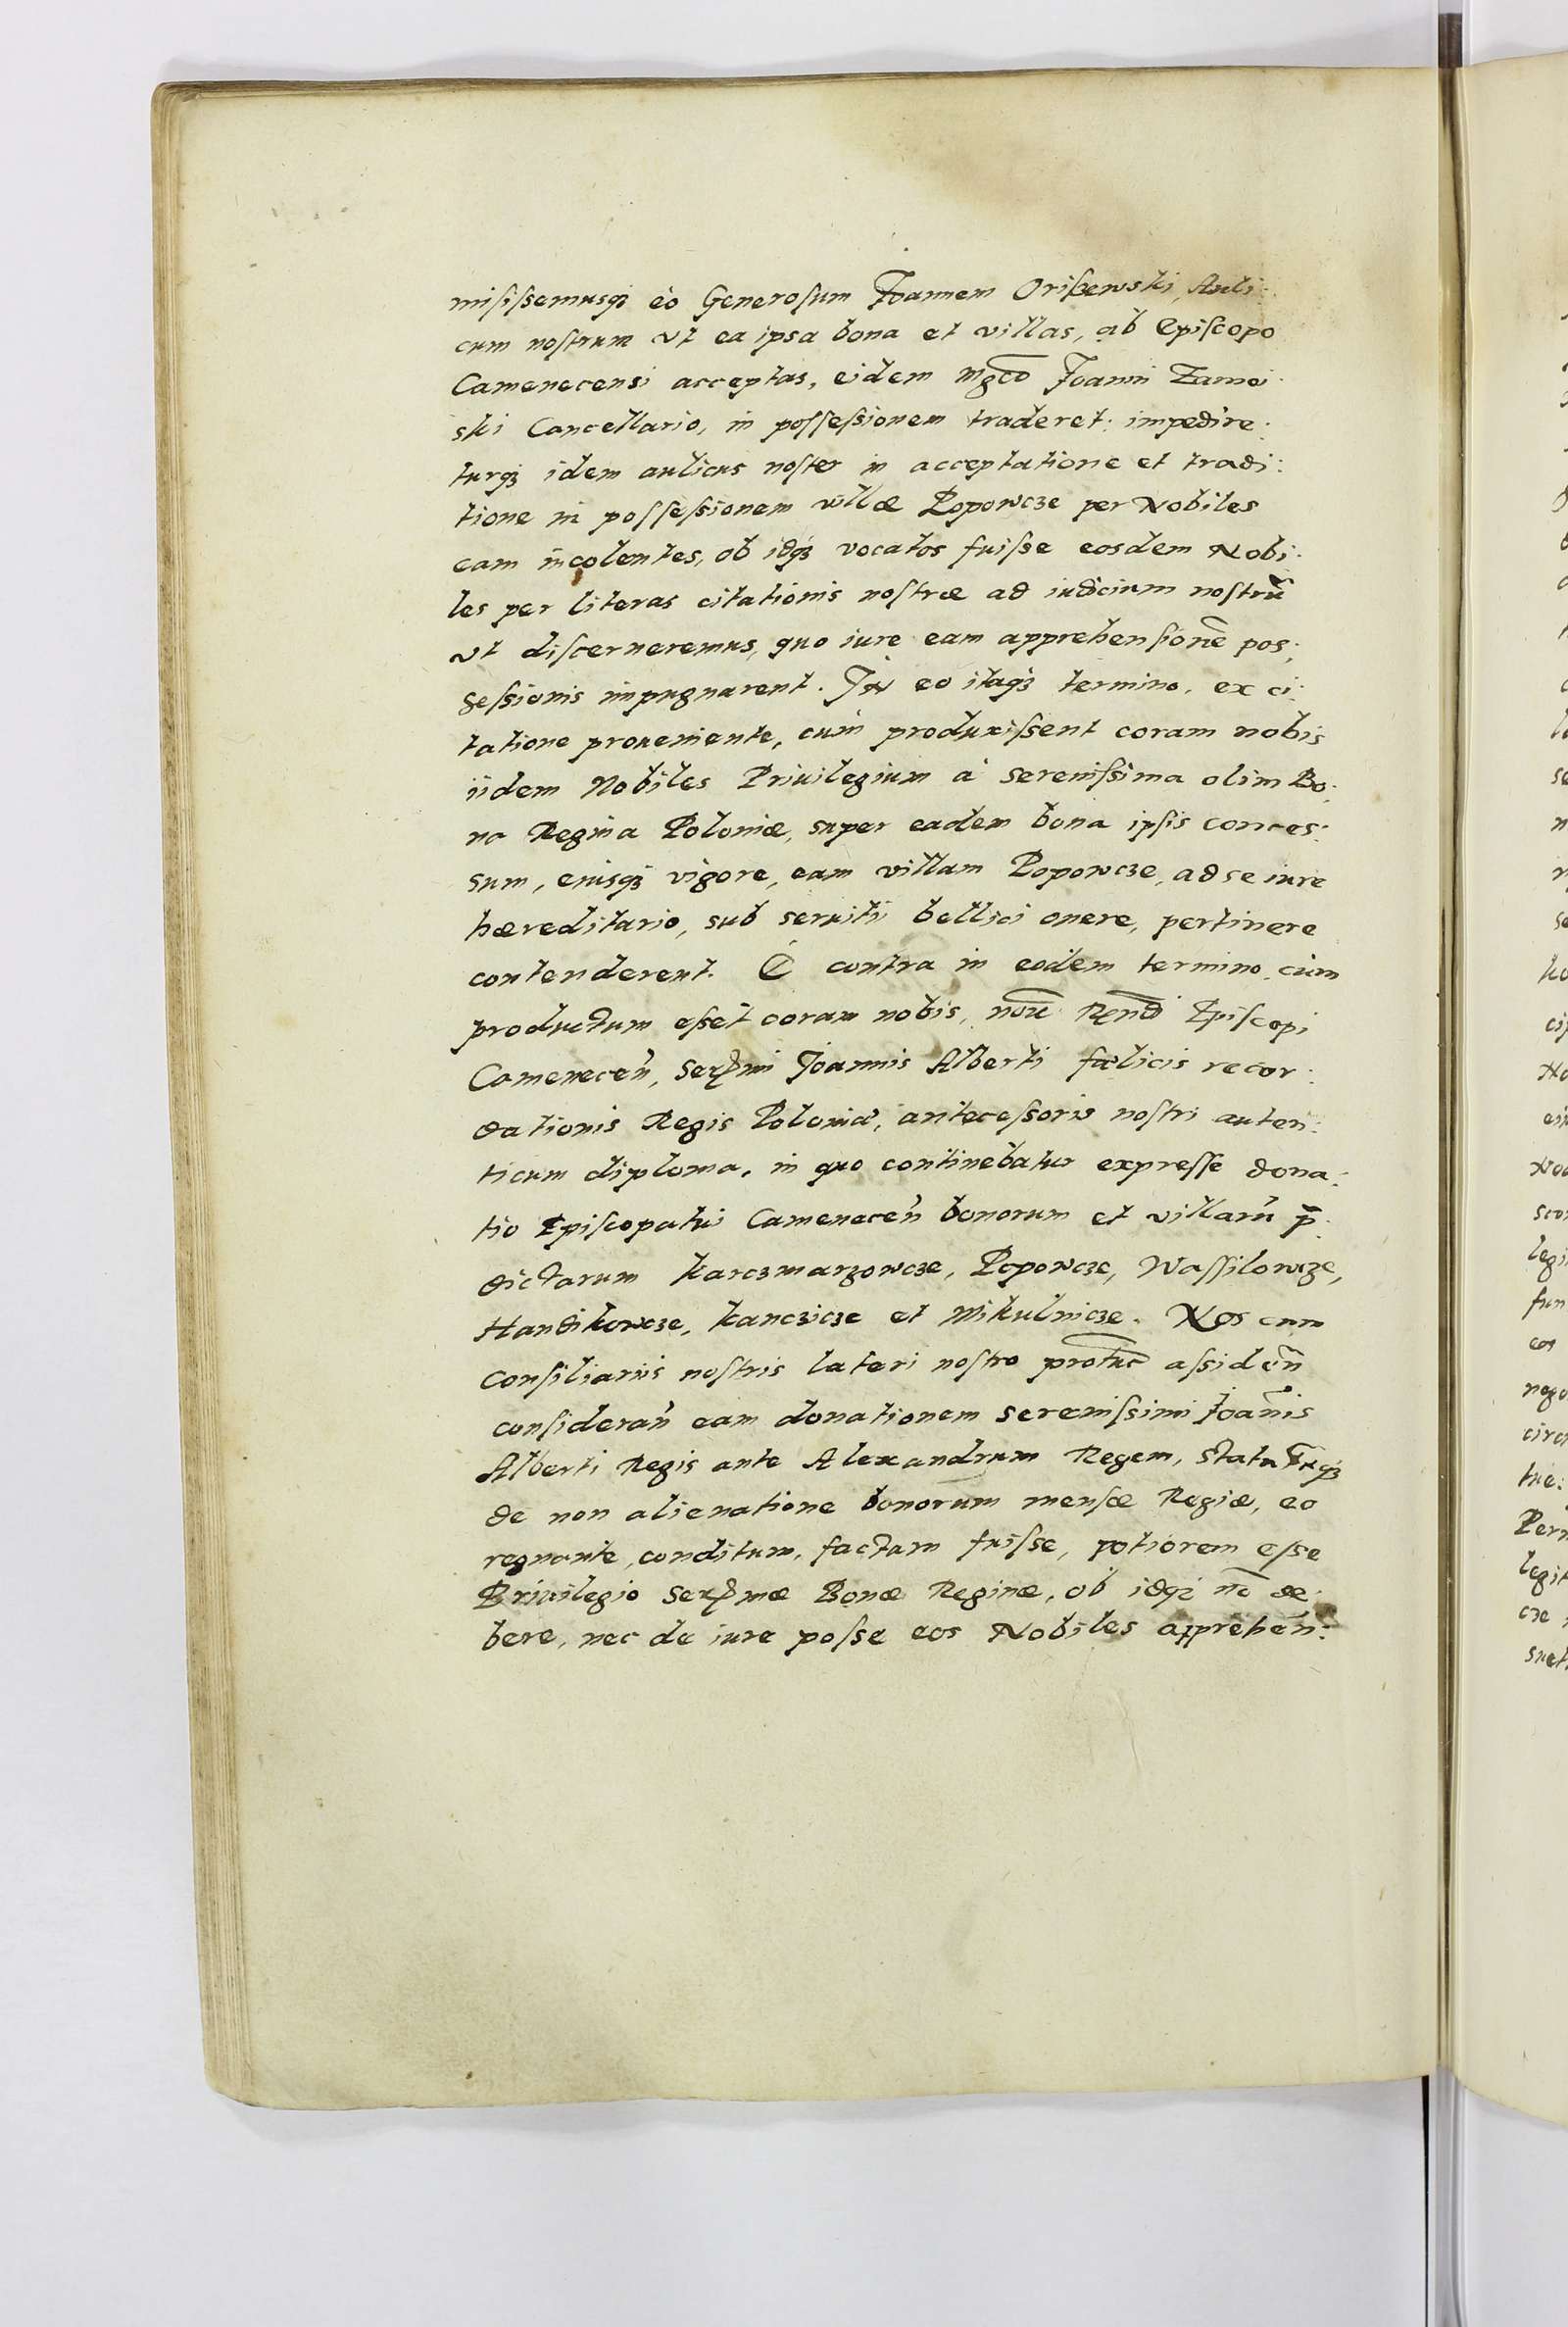 misissemusq₃ eò Generosum Joannem Orißewski, Auli:
cum nostrum vt ea ipsa bona et villas, ab Episcopo
Camenecensi acceptas, eidem Mgc̅o Joanni Zamoi:
ski Cancellario, in possessionem traderet: impedire:
turq₃ idem aulicus noster in acceptatione et tradi:
tione in possessionem villæ Popowcze per Nobiles
eam incolentes, ob idq₃ vocatos fuisse eosdem Nobi:
les per literas citationis nostræ ad iudicium nostrũ
vt discerneremus, quo iure eam apprehensionẽ pos:
sessionis impugnarent. In eo itaq₃ termino, ex ci:
tatione proueniente, cum produxissent coram nobis
iidem Nobiles Priuilegium à Serenissima olim Bo:
na Regina Poloniæ, super eadem bona ipsis conces:
sum, eiusq₃ vigore, eam villam Popowcze, ad se iure
hæreditario, sub seruitii bellici onere, pertinere
contenderent. E contra in eodem termino cùm
productum esset coram nobis, no̅i̅e̅ Re̅nd̅i Episcopi
Camenecen̅, Sermi Joannis Alberti fœlicis recor:
dationis Regis Poloniæ, antecessoris nostri auten:
ticum diploma, in quo continebatur expresse dona:
tio Episcopatui Camenecen̅ bonorum et villarũ p̅:
dictarum Karczmarzowcze, Popowcze, Wassilowcze,
Handikowcze, Kanczicze et Mikulnicze. Nos cum
consiliariis nostris lateri nostro protu̅c assiden̅
consideran̅ eam donationem serenissimi Joan̅is
Alberti Regis ante Alexandrum Regem, Statutũq₃
de non alienatione bonorum mensæ Regiæ, eo
regnante, conditum, factam fuisse, potiorem esse
Priuilegio Sermæ Bonæ Reginæ, ob idq₃ no̅ de:
bere, nec de iure posse eos Nobiles apprehen̅: